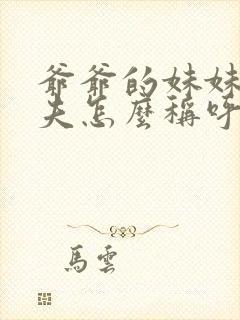 爺爺的妹妹
夫怎麼稱呼
馬雲